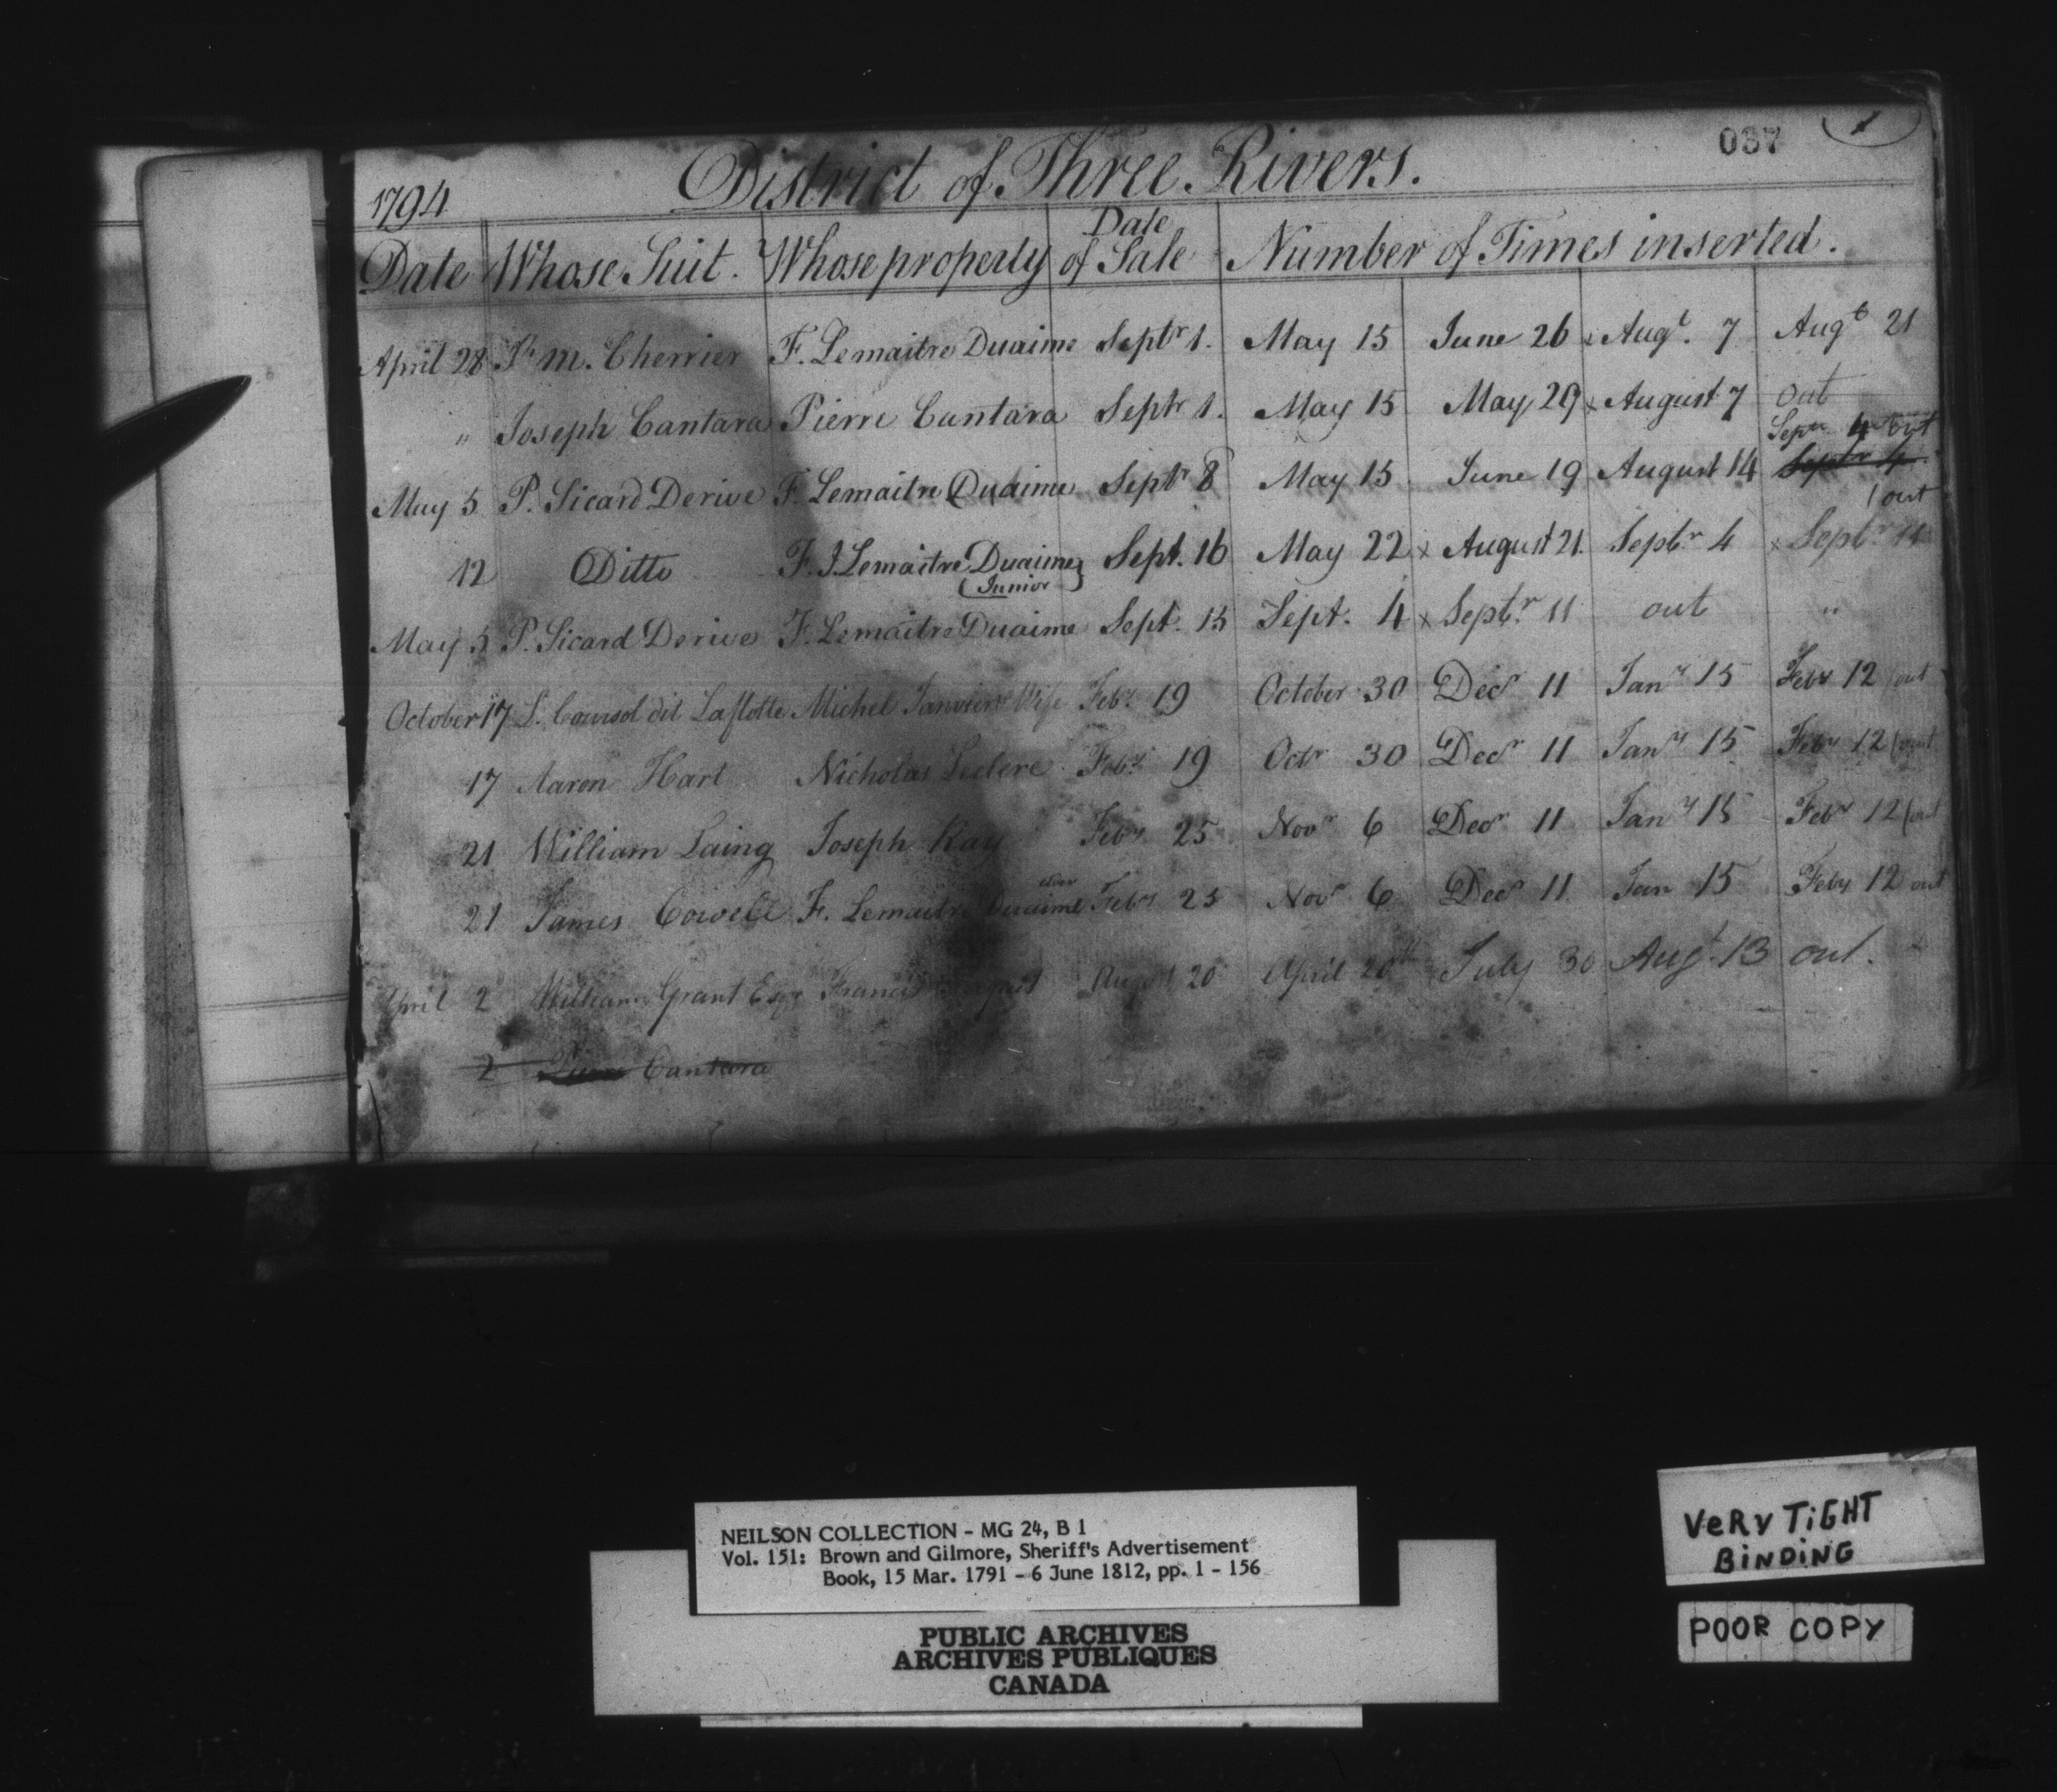 037 1
1794 District of Three Rivers.
Date Whose Suit. Whose property Date of Sale Number of Times inserted.
April 28 Jh. M. Cherrier F. Lemaitre Duaime Septr 1. May 15 June 26 x Augt. 7 Augt 21
" Joseph Cantara Pierre Cantara Septr 1. May 15 May 29 x August 7 out
Septr 4 out
May 5 P. Sicard Derive F. Lemaitre Duaime Septr 8 May 15 June 19 August 14 Septr 4
(out
12 Ditto F. J. Lemaitre Duaime Sept. 16 May 22 x August 21. Septr 4 x Septr 11
(Junior)
May 5 P. Sicard Derive F. Lemaitre Duaime Sept. 15 Sept. 4 x Septr 11 out "
October 17 L. Coursol dit Laflotte Michel Janvier Wife Feby 19 October 30 Decr 11 Jany 15 Feby 12 (out
17 Aaron Hart Nicholas Leclere Feby 19 Octr 30 Decr 11 Jany 15 Feby 12 (out
21 William Laing Joseph Kay Feby 25 Novr 6 Decr 11 Jany 15 Feby 12 (out
21 James Cowell F. Lemaitre Duaime Feby 25 Novr 6 Decr 11 Jan 15 Feby 12 out
April 2 William Grant Esqr Francis August 20 April 20th July 30 Augt 13 out.
2 Pierre Cantara
NEILSON COLLECTION - MG 24, B 1
Vol. 151: Brown and Gilmore, Sheriff's Advertisement
Book, 15 Mar. 1791 - 6 June 1812, pp. 1 - 156
PUBLIC ARCHIVES
ARCHIVES PUBLIQUES
CANADA
VeRy TiGHT
BiNDiNG
POOR COPY